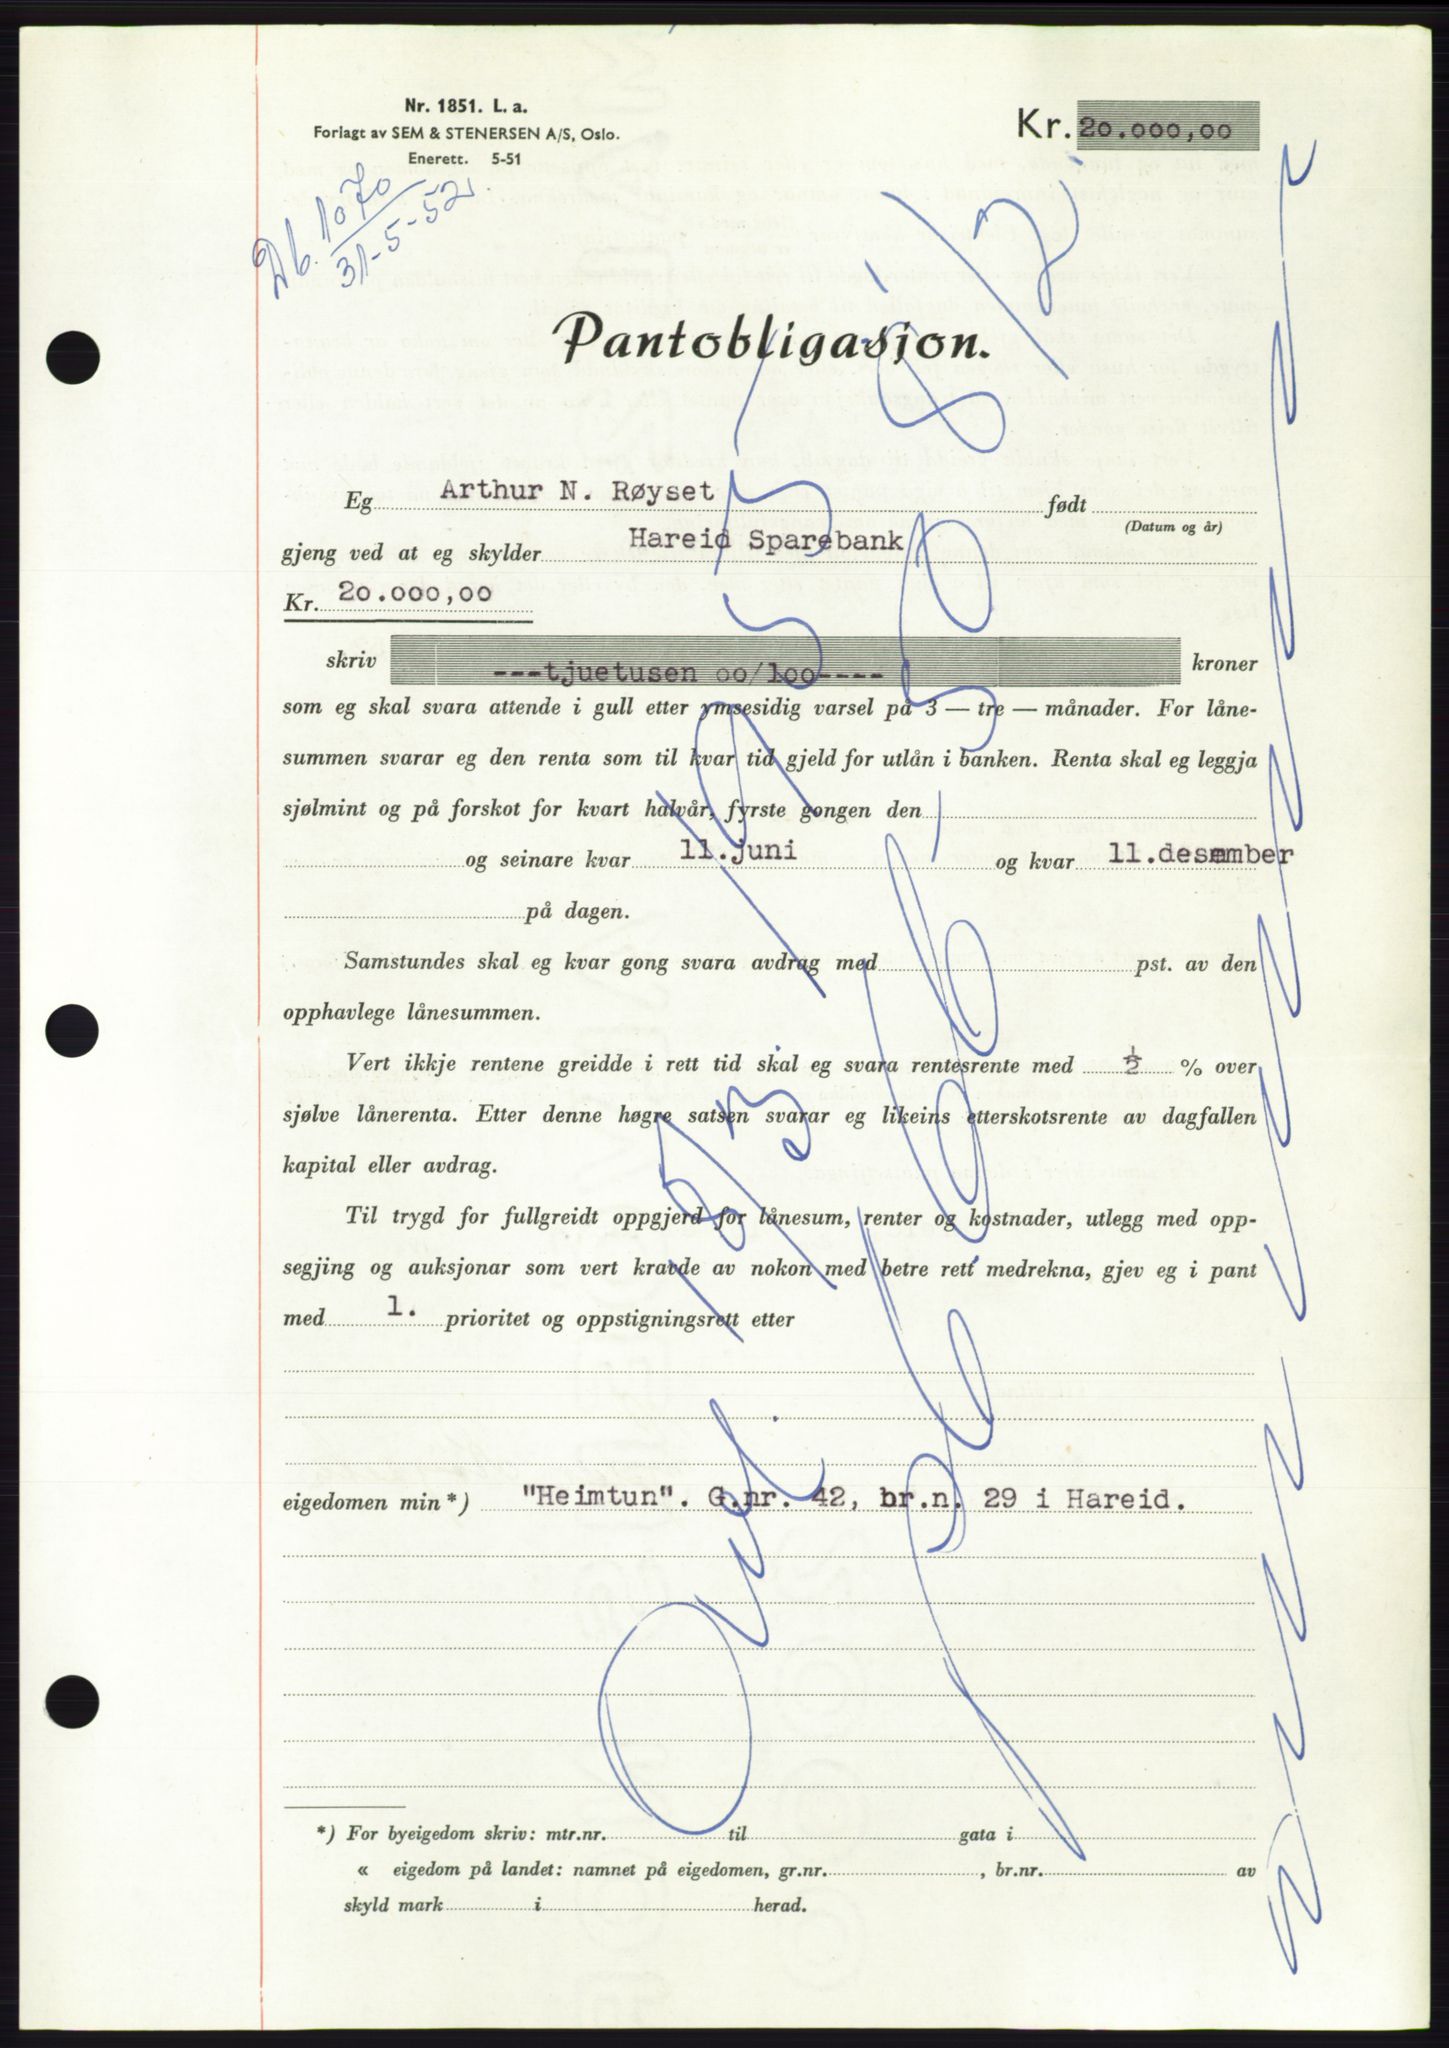 Nr. 1851. L. a.
Forlagt av SEM & STENERSEN A/S, Oslo.
Enerett. 5-51
Kr. 20.000,00
Db. 1070
31-5-52.
Pantobligasjon.
Eg Arthur N. Røyset født
(Datum og år)
gjeng ved at eg skylder Hareid Sparebank
Kr. 20.000,00
skriv ---tjuetusen oo/loo---- kroner
som eg skal svara attende i gull etter ymsesidig varsel på 3 — tre — månader. For låne-
summen svarar eg den renta som til kvar tid gjeld for utlån i banken. Renta skal eg leggja
sjølmint og på forskot for kvart halvår, fyrste gongen den
og seinare kvar 11.juni og kvar 11.desember
på dagen.
Samstundes skal eg kvar gong svara avdrag med pst. av den
opphavlege lånesummen.
Vert ikkje rentene greidde i rett tid skal eg svara rentesrente med ½ % over
sjølve lånerenta. Etter denne høgre satsen svarar eg likeins etterskotsrente av dagfallen
kapital eller avdrag.
Til trygd for fullgreidt oppgjerd for lånesum, renter og kostnader, utlegg med opp-
segjing og auksjonar som vert kravde av nokon med betre rett medrekna, gjev eg i pant
med 1. prioritet og oppstigningsrett etter
eigedomen min*) "Heimtun". G.nr. 42, br.n. 29 i Hareid.
*) For byeigedom skriv: mtr.nr. til gata i
« eigedom på landet: namnet på eigedomen, gr.nr. , br.nr. av
skyld mark i herad.